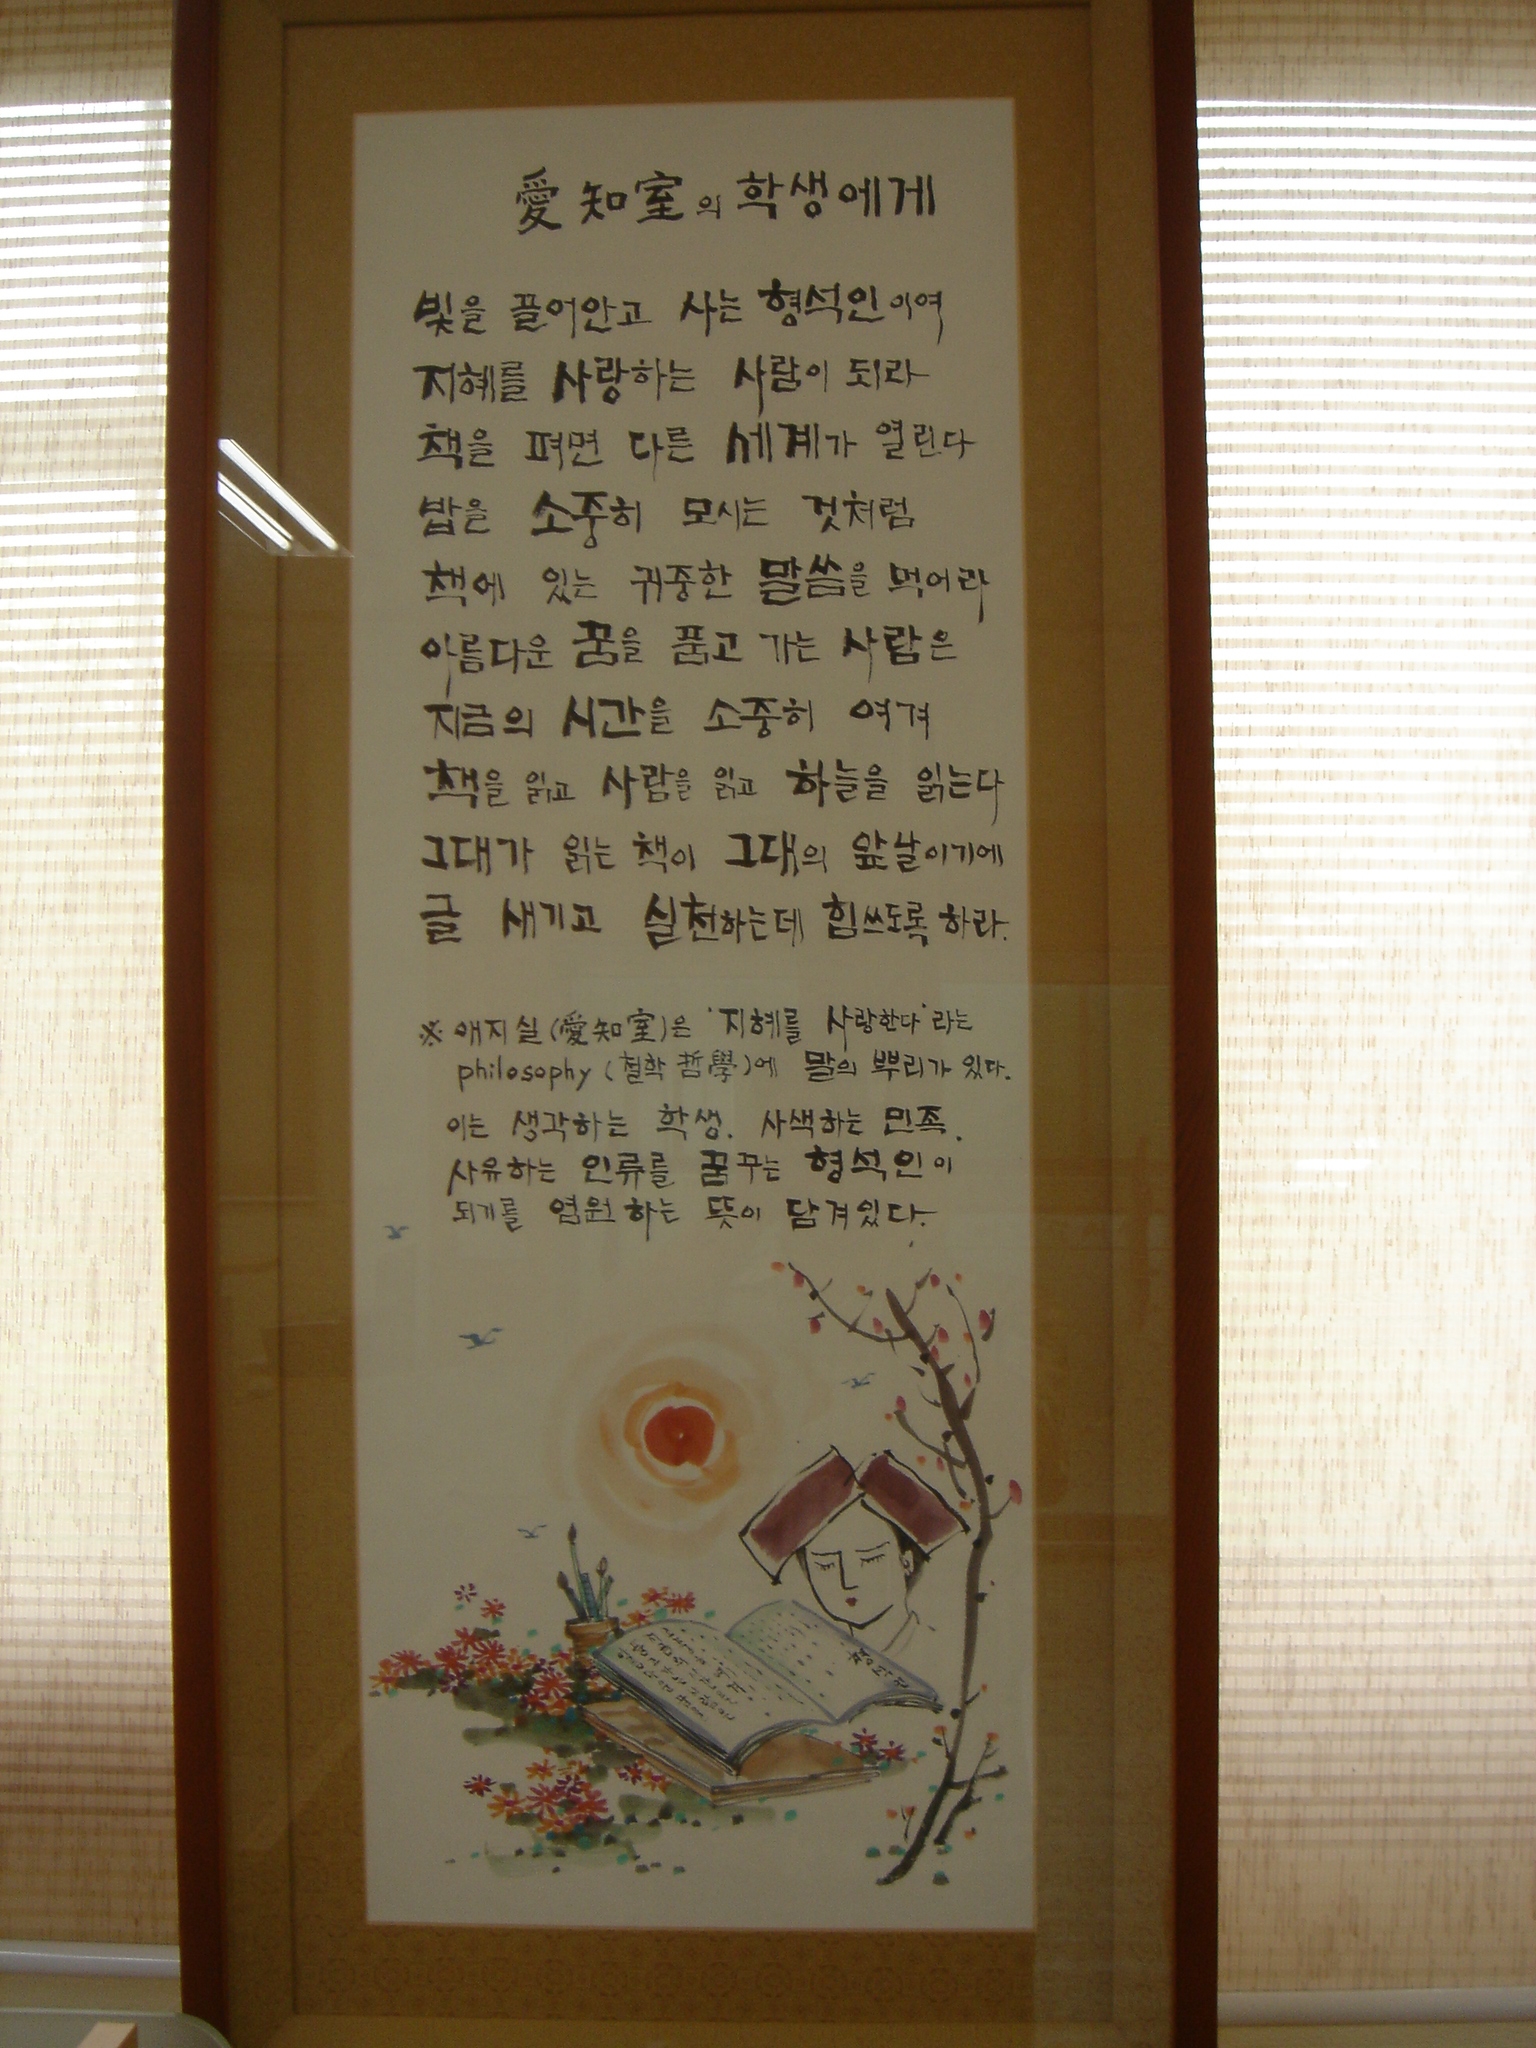 愛知室의 학생에게
빛을 끌어안고 사는 형석인이여
지혜를 사랑하는 사람이 되라
책을 펴면 다른 세계가 열린다
밥을 소중히 모시는 것처럼
책에 있는 귀중한 말씀을 먹어라
아름다운 꿈을 품고 가는 사람은
지금의 시간을 소중히 여겨
책을 읽고 사람을 읽고 하늘을 읽는다
그대가 읽는 책이 그대의 앞날이기에
글 새기고 실천하는데 힘쓰도록 하라.
※ 애지실(愛知室)은 '지혜를 사랑한다'라는
philosophy (철학 哲學)에 말의 뿌리가 있다.
이는 생각하는 학생. 사색하는 민족.
사유하는 인류를 꿈꾸는 형석인이
되기를 염원하는 뜻이 담겨있다.